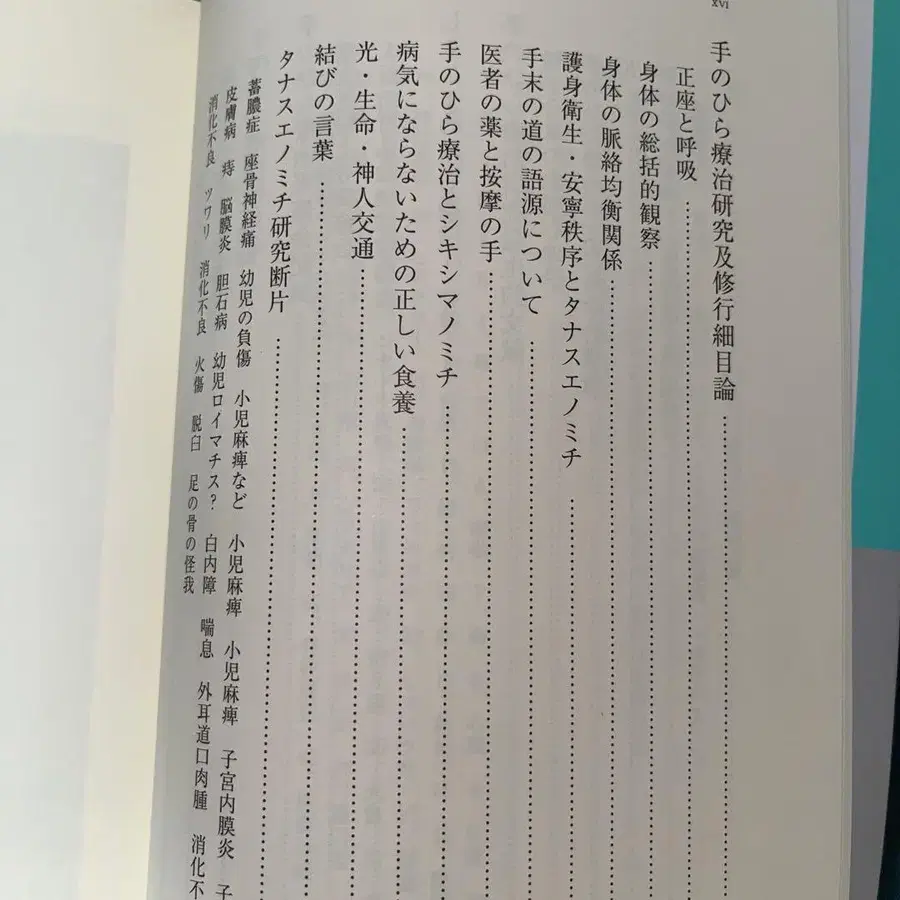 xvi
手のひら療治研究及修行細目論……………………
正座と呼吸……………………
身体の総括的観察……………………
身体の脈絡均衡関係……………………
護身衛生・安寧秩序とタナスエノミチ……………………
手末の道の語源について……………………
医者の薬と按摩の手……………………
手のひら療治とシキシマノミチ……………………
病気にならないための正しい食養……………………
光・生命・神人交通……………………
結びの言葉……………………
タナスエノミチ研究断片……………………
蓄膿症 座骨神経痛 幼児の負傷 小児麻痺など 小児麻痺 小児麻痺 子宮内膜炎 子
皮膚病 痔 脳膜炎 胆石病 幼児ロイマチス? 白内障 喘息 外耳道口肉腫 消化不
消化不良 ツワリ 消化不良 火傷 脱臼 足の骨の怪我